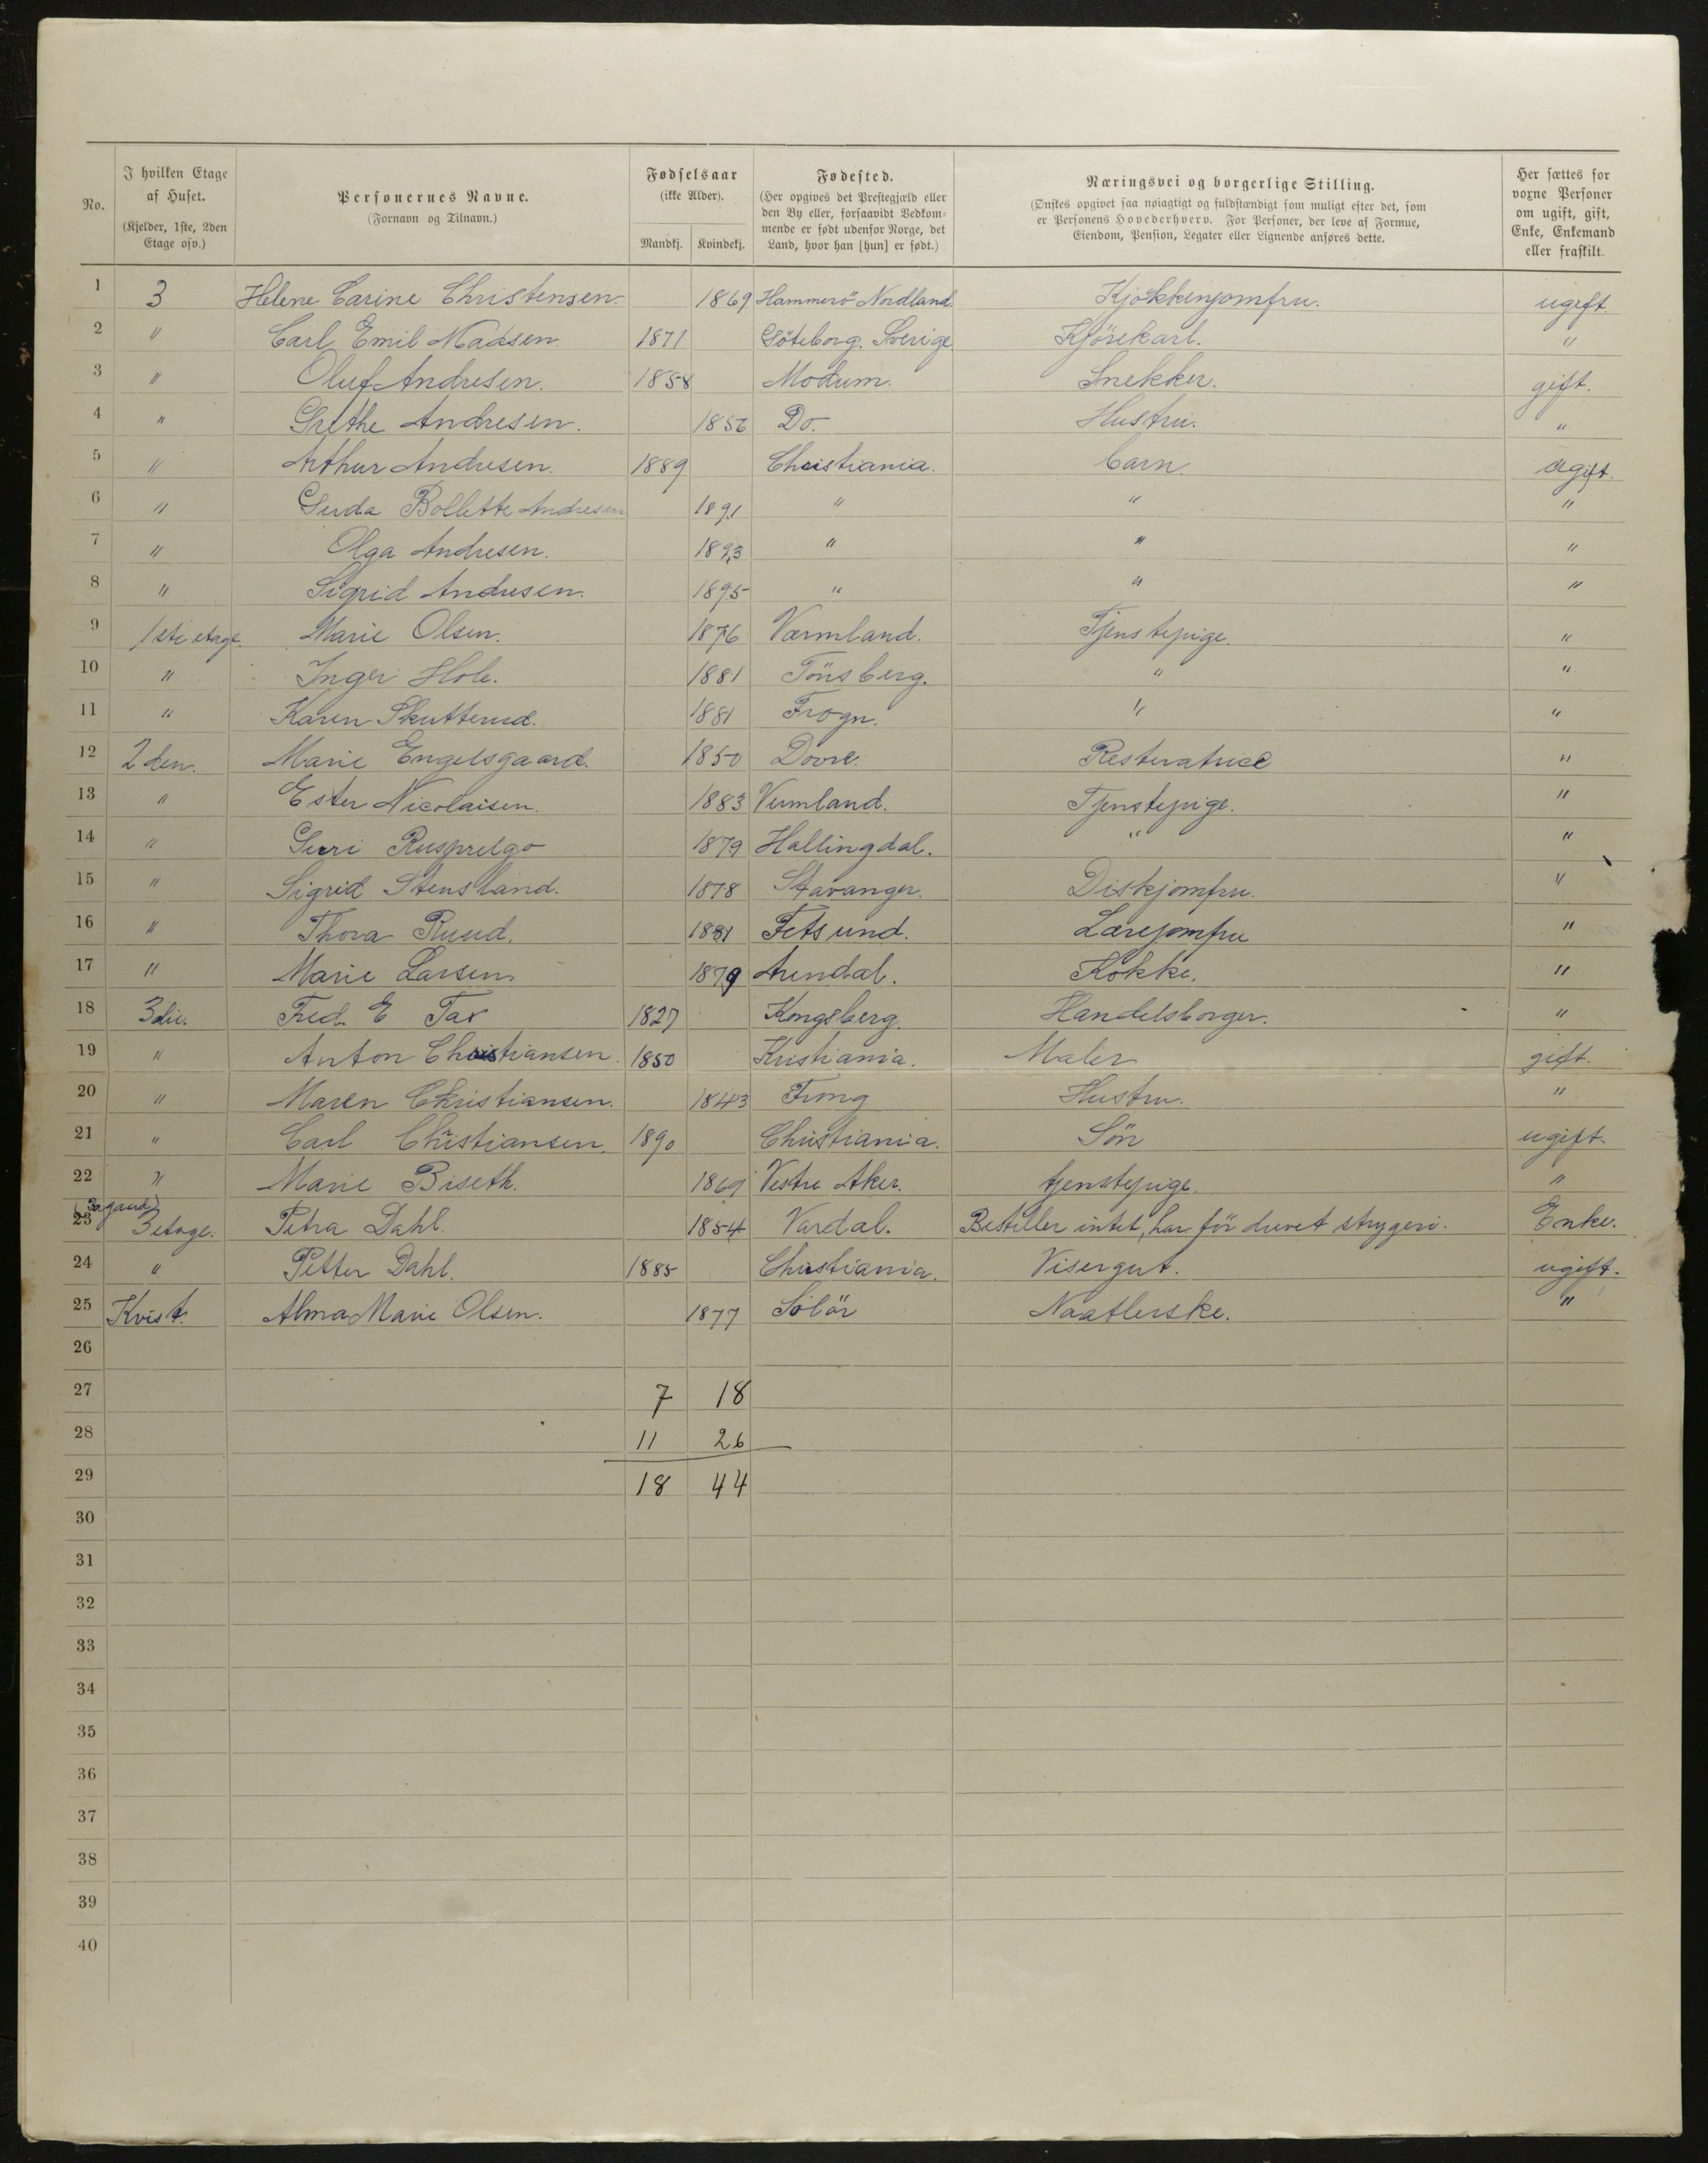 No.
I hvilken Etage af Huset.
(Kjelder, 1ste, 2den Etage osv.)
Personernes Navne.
(Fornavn og Tilnavn.)
Fødselsaar
(ikke Alder).
Mandkj. Kvindekj.
Fødested.
(Her opgives det Prestegjæld eller
den By eller, forsaavidt Vedkom-
mende er født udenfor Norge, det
Land, hvor han [hun] er født.)
Næringsvei og borgerlige Stilling.
(Ønskes opgivet saa nøiagtigt og fuldstændigt som muligt efter det, som
er Personens Hovederhverv. For Personer, der leve af Formue,
Eiendom, Pension, Legater eller Lignende anføres dette.
Her sættes for
voxne Personer
om ugift, gift,
Enke, Enkemand
eller fraskilt.
1 3 Helene Carine Christensen. 1869 Hammerö Nordland. Kjökkenjomfru. ugift
2 " Carl Emil Madsen 1871 Göteborg. Sverige Kjörekarl. "
3 " Oluf Andresen. 1858 Modum. Snekker. gift.
4 " Grethe Andresen. 1856 Do. Hustru. "
5 " Arthur Andresen. 1889 Christiania. barn. ugift.
6 " Gerda Bollette Andresen 1891 " " "
7 " Olga Andresen. 1893 " " "
8 " Sigrid Andresen. 1895 " " "
9 1ste etage. Marie Olsen. 1876 Värmland. Tjenstepige. "
10 " Inger Hole. 1881 Tönsberg. " "
11 " Karen Skutterud. 1881 Frogn. " "
12 2den. Marie Engelsgaard. 1850 Dovre. Resteratrice "
13 " Ester Nicolaisen. 1883 Vermland. Tjenstepige. "
14 " Guri 1879 Hallingdal. " "
15 " Sigrid Stensland. 1878 Stavanger. Diskjomfru. "
16 " Thora Ruud. 1881 Fetsund. Lærejomfru "
17 " Marie Larsen 1879 Arendal. Kokke. "
18 3die. Fred. E Tax 1827 Kongsberg. Handelsborger. "
19 " Anton Christiansen. 1850 Kristiania. Maler gift.
20 " Maren Christiansen. 1843 Hustru. "
21 " Carl Christiansen. 1890 Christiania. Sön ugift.
22 " Marie Biseth. 1869 Vestre Aker. tjenstepige. "
23 3 etage. Petra Dahl. 1854 Vardal. Bestiller intet, har för drevet strygeri. Enke.
24 " Petter Dahl. 1885 Christiania. Visergut. ugift.
25 Kvist. Alma Marie Olsen. 1877 Solör Naatlerske. "
26
27 7 18
28 11 26
29 18 44
30
31
32
33
34
35
36
37
38
39
40